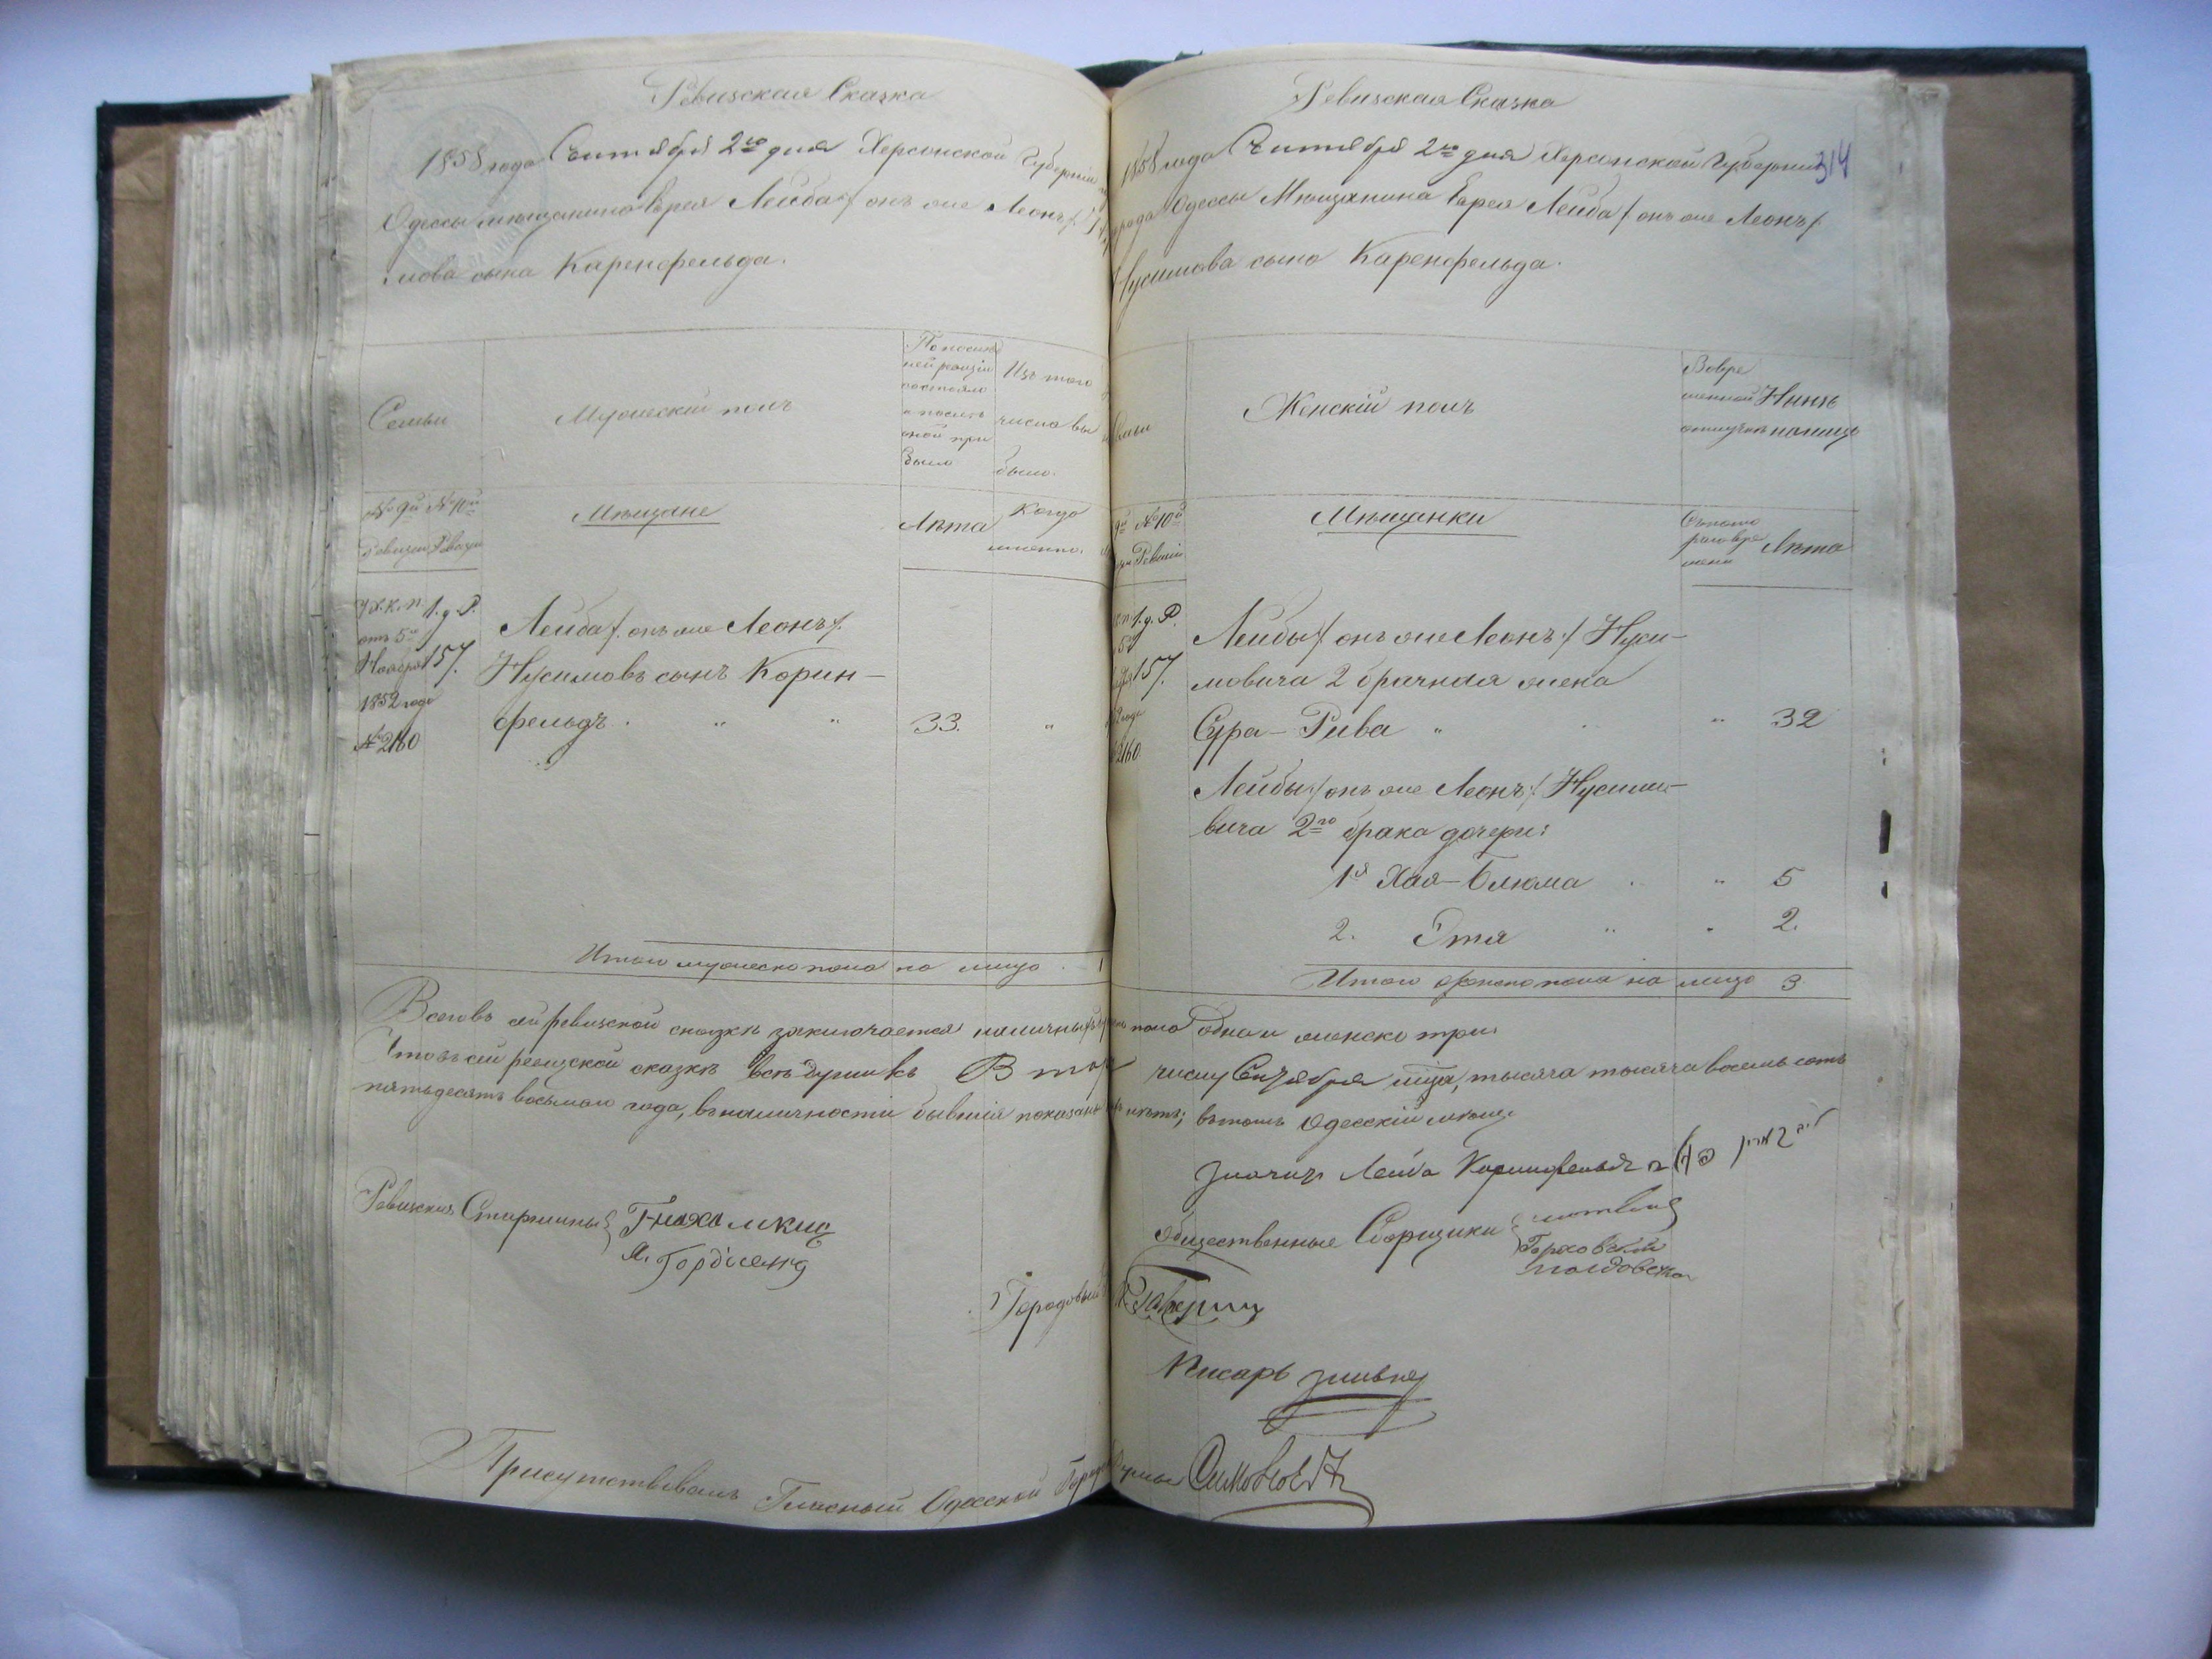 Ревизская Сказка
1858 года Сентября 2го дня Херсонской Губерніи
Одессы мѣщанина Еврея Лейба /: онъ же Леонъ :/
мова сына Каренфельда.
Семьи
Мужескій полъ
По послѣд
ней ревизіи
состояло
и послѣ
оной при
было
Изъ того
числа вы
было.
№ 9й № 10й
Ревизіи Ревизіи
Мѣщане
Лѣта
Когда
именно.
У.Х.К.П. 1.д.Р.
отъ 5го
Ноября 157.
1852 года
№ 2160
Лейба /: онъ же Леонъ :/
Нусимовъ сынъ Корин-
фельдъ . " " 33. "
Итого мужеска пола на лицо . 1
Ревизская Сказка
314
1858 года Сентября 2го дня Херсонской Губерніи
города Одессы Мѣщанина Еврея Лейба /: онъ же Леонъ :/
Нусимова сына Каренфельда.
Женскій полъ
Вовре
менной
отлучкѣ
Нынѣ
на лицо
№ 10й
Ревизіи
Мѣщанки
Съ кото
раго вре
мени
Лѣта
1.д.Р.
157.
2160
Лейбы /: онъ же Леонъ :/ Нуси-
мовича 2 брачная жена
Сура-Рива " " 32
Лейбы /: онъ же Леонъ :/ Нусимо-
вича 2го брака дочери:
1я Хая-Блюма . " 5
2. Этя " " 2.
Итого женска пола на лицо 3
Всего въ сей ревизской сказкѣ заключается наличныхъ пола одна и женска три.
Что въ сей ревизской сказкѣ всѣ души къ Втор числу Сентября мца, тысяча тысяча восемь сотъ
пятьдесятъ восьмаго года, въ наличности бывшія показаны нѣтъ; въ томъ Одесскій мѣща
Лейба Коринфельдъ
Ревизскіе Старшины
Общественные Сборщики
Городовый
Писарь
Присутствовалъ Гласный Одесской Город Думы